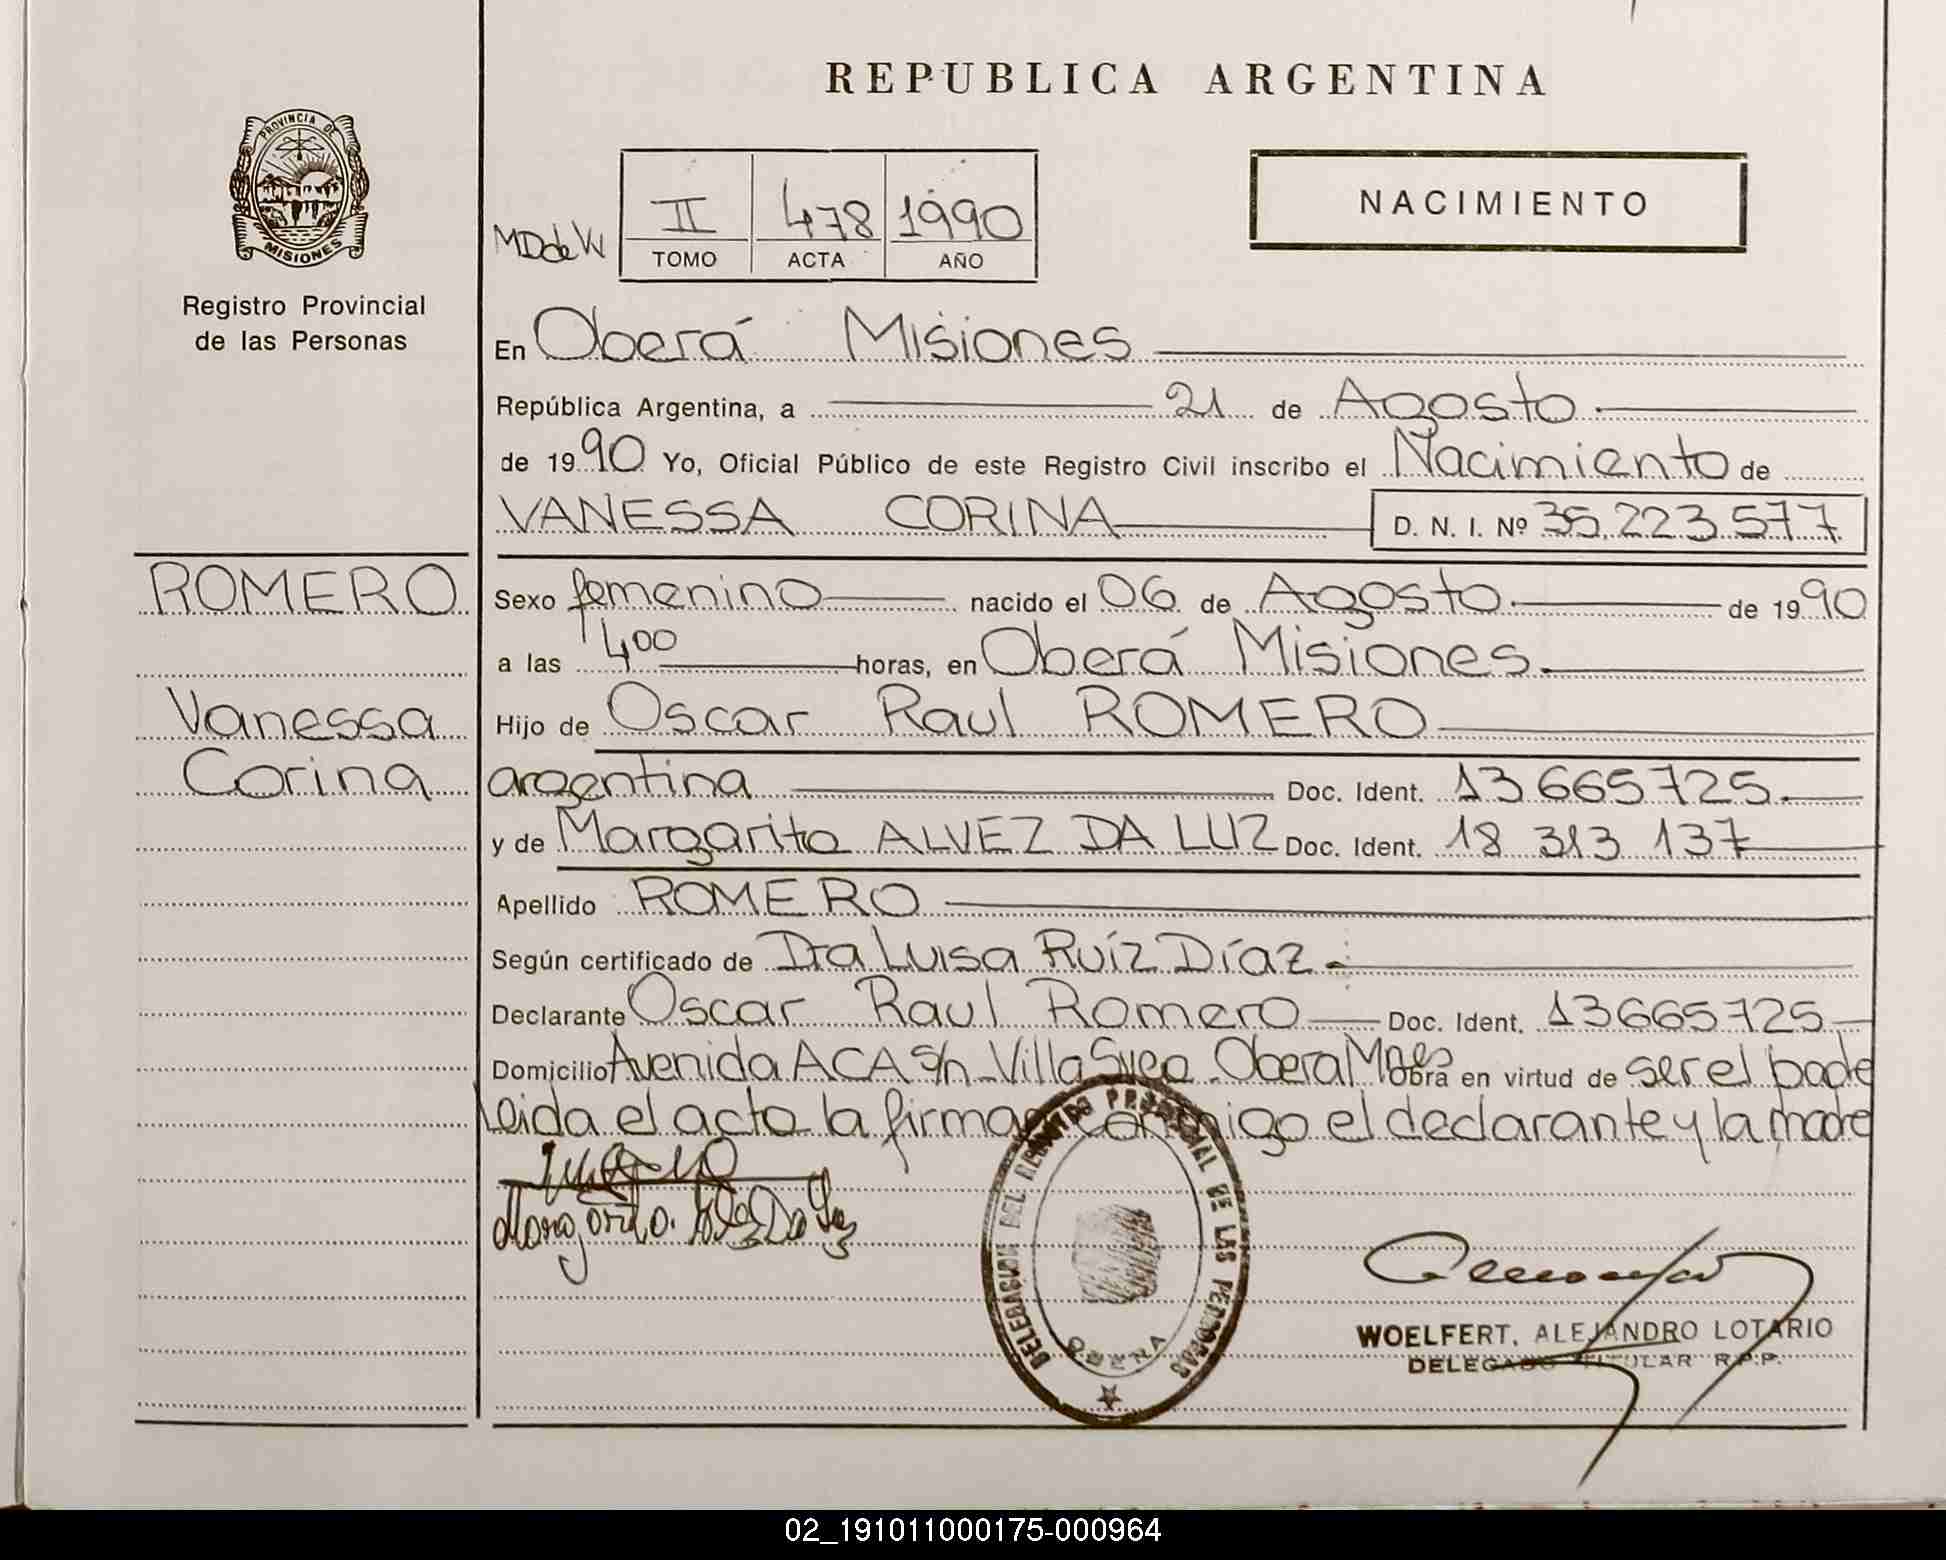 REPUBLICA ARGENTINA
PROVINCIA DE
MISIONES
Registro Provincial
de las Personas
NACIMIENTO
MD de W
II 478 1990
TOMO ACTA AÑO
En Oberá Misiones
República Argentina, a 21 de Agosto
de 1990 Yo, Oficial Público de este Registro Civil inscribo el Nacimiento de
VANESSA CORINA D. N. I. Nº 35.223.577
ROMERO
Vanessa
Corina
Sexo femenino nacido el 06 de Agosto de 1990
a las 4,00 horas, en Oberá Misiones.
Hijo de Oscar Raul ROMERO
argentina Doc. Ident. 13 665725.
y de Margarita ALVEZ DA LUZ Doc. Ident. 18 313 137
Apellido ROMERO
Según certificado de Dra Luisa Ruíz Díaz.
Declarante Oscar Raul Romero Doc. Ident. 13665725
Domicilio Avenida ACA S/n - Villa Svea. Obera Mnes Obra en virtud de ser el padre
Leida el acta la firman conmigo el declarante y la madre
Margarita Alvez Da Luz
DELEGACION DEL REGISTRO PROVINCIAL DE LAS PERSONAS
OBERA
WOELFERT, ALEJANDRO LOTARIO
DELEGADO TITULAR R.P.P.
02_191011000175-000964